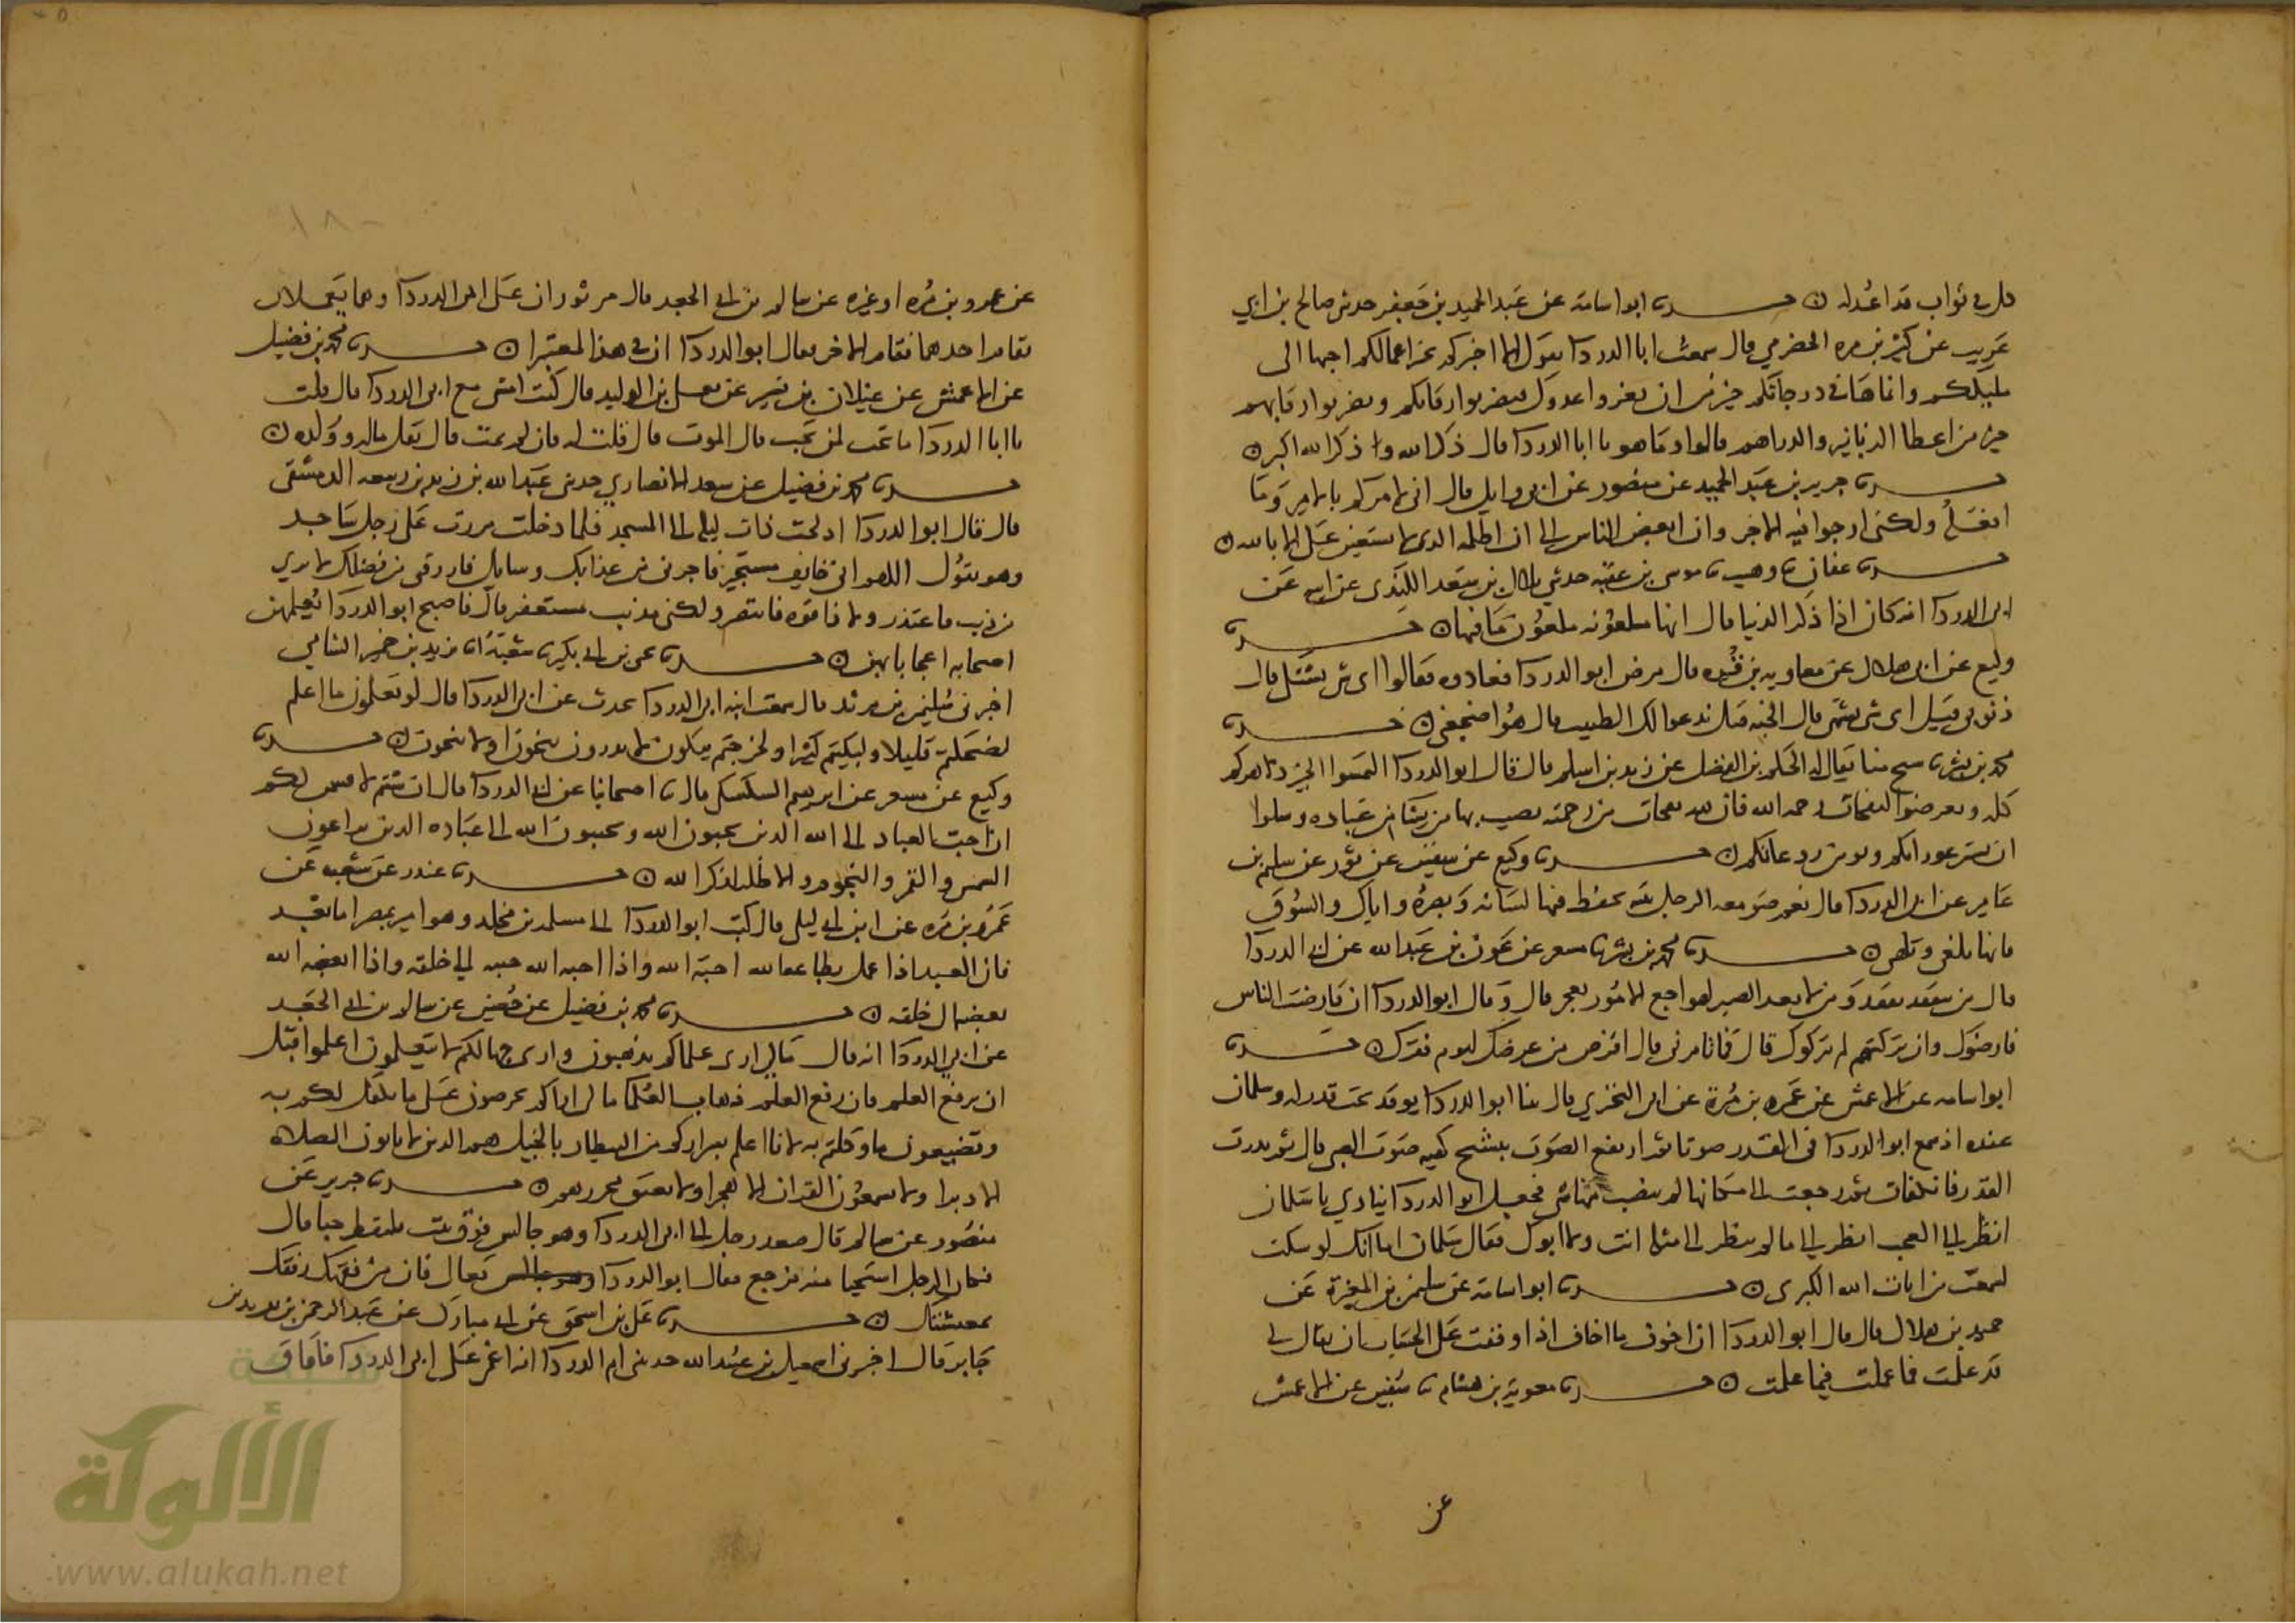 كل في ثواب قد اعد له ن حدثنا ابو اسامة عن عبد الحميد بن جعفر حدثني صالح بن ابي
عريب عن كثير بن مره الحضرمي قال سمعت ابا الدردا يقول الا اخبركم بخير اعمالكم احبها الى
مليككم وانماها في درجاتكم خير من ان تغزوا عدوكم فيضربوا رقابكم وتضربوا رقابهم
خير من اعطا الدنانير والدراهم قالوا وما هو يا ابا الدردا قال ذكر الله ولذكر الله اكبر ن
حدثنا جرير بن عبد الحميد عن منصور عن ابي وايل قال اني لامركم بالامر وما
افعله ولكني ارجوا فيه الاجر وان ابغض الناس الي ان اظلمه الذي لا يستعين علي الا بالله ن
حدثنا عفان نا وهيب نا موسى بن عقبه حدثني بلال بن سعد الكندي عن ابيه عن
ابي الدردا انه كان اذا ذكر الدنيا قال انها ملعونه ملعون ما فيها ن حدثنا
وكيع عن ابي هلال عن معاويه بن قره قال مرض ابو الدردا فعادوه فقالوا اي شي تشتكي قال
ذنوبي قيل اي شي تشتهي قال الجنه قيل ندعوا لك الطبيب قال هو اضجعني ن حدثنا
محمد بن بشر نا شيخ منا يقال له الحكم بن الفضل عن زيد بن اسلم قال قال ابو الدردا التمسوا الخير دهركم
كله وتعرضوا لنفحات رحمه الله فان لله نفحات من رحمته يصيب بها من يشا من عباده وسلوا
ان يستر عوراتكم ويومن روعاتكم ن حدثنا وكيع عن سفين عن ثور عن سليم بن
عامر عن ابي الدردا قال نعم صومعه الرجل بيته يحفظ فيها لسانه وبصره واياك والسوق
فانها تلغي وتلهي ن حدثنا محمد بن بشر نا مسعر عن عون بن عبد الله عن ابي الدردا
قال من يتفقد يفقد ومن لا يعد الصبر لفواجع الامور يعجز قال وقال ابو الدردا ان قارضت الناس
قارضوك وان تركتهم لم يتركوك قال فما تامرني قال اقرض من عرضك ليوم فقرك ن حدثنا
ابو اسامه عن الاعمش عن عمرو بن مرة عن ابي البختري قال بينا ابو الدردا يوقد تحت قدر له وسلمان
عنده اذ سمع ابو الدردا في القدر صوتا ثم ارتفع الصوت بنشيج كهيه صوت الصبي قال ثم ندرت
القدر فانكفات ثم رجعت الى مكانها لم ينصب منها شي فجعل ابو الدردا ينادي يا سلمان
انظر الى العجب انظر الى ما لم ينظر الى مثله انت ولا ابوك فقال سلمان اما انك لو سكت
لسمعت من ايات الله الكبرى ن حدثنا ابو اسامة عن سليمن بن المغيرة عن
حميد بن هلال قال قال ابو الدردا ان اخوف ما اخاف اذا وقفت على الحساب ان يقال لي
قد علمت فما عملت فيما علمت ن حدثنا معوية بن هشام نا سفين عن الاعمش
عن
عن عمرو بن مره او غيره عن سالم بن ابي الجعد قال مر ثوران على ابي الدردا وهما يعملان
فقام احدهما فقام الاخر فقال ابو الدردا ان في هذا لمعتبرا ن حدثنا محمد بن فضيل
عن الاعمش عن غيلان بن بشير عن يعلى بن الوليد قال كنت امشي مع ابي الدردا قال قلت
يا ابا الدردا ما تحب لمن تحب قال الموت قال قلت له فان لم يمت قال يقل ماله وولده ن
حدثنا محمد بن فضيل عن سعد الانصاري حدثني عبد الله بن يزيد بن ربيعه الدمشقي
قال قال ابو الدردا ادلجت ذات ليله الى المسجد فلما دخلت مررت على رجل ساجد
وهو يقول اللهم اني خايف مستجير فاجرني من عذابك وسايل فارزقني من فضلك لا بري
من ذنب فاعتذر ولا ذا قوه فانتصر ولكني مذنب مستغفر قال فاصبح ابو الدردا يعلمهن
اصحابه اعجابا بهن ن حدثنا يحيى بن ابي بكير نا شعبة نا يزيد بن خمير الشامي
اخبرني سليمن بن مرثد قال سمعت ابنه ابي الدردا تحدث عن ابي الدردا قال لو تعلمون ما اعلم
لضحكتم قليلا ولبكيتم كثيرا ولخرجتم تبكون لا تدرون تنجون او لا تنجون ن حدثنا
وكيع عن مسعر عن ابرهيم السكسكي قال نا اصحابنا عن ابي الدردا قال ان شئتم لاقسمن لكم
ان احب العباد الى الله الذين يحبون الله ويحببون الله الى عباده الذين يراعون
الشمس والقمر والنجوم والاظله لذكر الله ن حدثنا غندر عن شعبه عن
عمرو بن مره عن ابن ابي ليلى قال كتب ابو الدردا الى مسلمه بن مخلد وهو امير بمصر اما بعد
فان العبد اذا عمل بطاعه الله احبه الله واذا احبه الله حببه الى خلقه واذا ابغضه الله
بغضه الى خلقه ن حدثنا محمد بن فضيل عن حصين عن سالم بن ابي الجعد
عن ابي الدردا انه قال مالي ارى علماكم يذهبون وارى جهالكم لا يتعلمون اعلموا قبل
ان يرفع العلم فان رفع العلم ذهاب العلما مالي اراكم تحرصون على ما تكفل لكم به
وتضيعون ما وكلتم به لانا اعلم بشراركم من البيطار بالخيل هم الذين لا ياتون الصلاة
الا دبرا ولا يسمعون القران الا هجرا ولا يعتق محررهم ن حدثنا جرير عن
منصور عن سالم قال صعد رجل الى ابي الدردا وهو جالس فوق بيت يلتقط حبا قال
فكان الرجل استحيا منه فرجع فقال ابو الدردا تعال فان من فقهك رفقك
بمعيشتك ن حدثنا علي بن اسحق عن ابن مبارك عن عبد الرحمن بن يزيد بن
جابر قال اخبرني اسمعيل بن عبيد الله حدثتني ام الدردا انه اغمي على ابي الدردا فافاق
شبكة
الألوكة
www.alukah.net